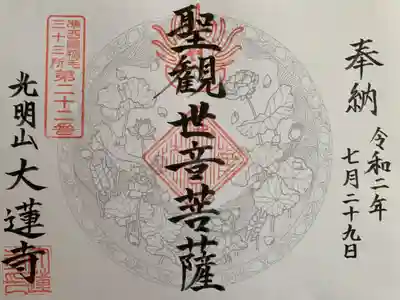 奉納
令和二年
七月二十九日
聖観世音菩薩
準西國稲毛
三十三所
第二十二番
光明山大蓮寺